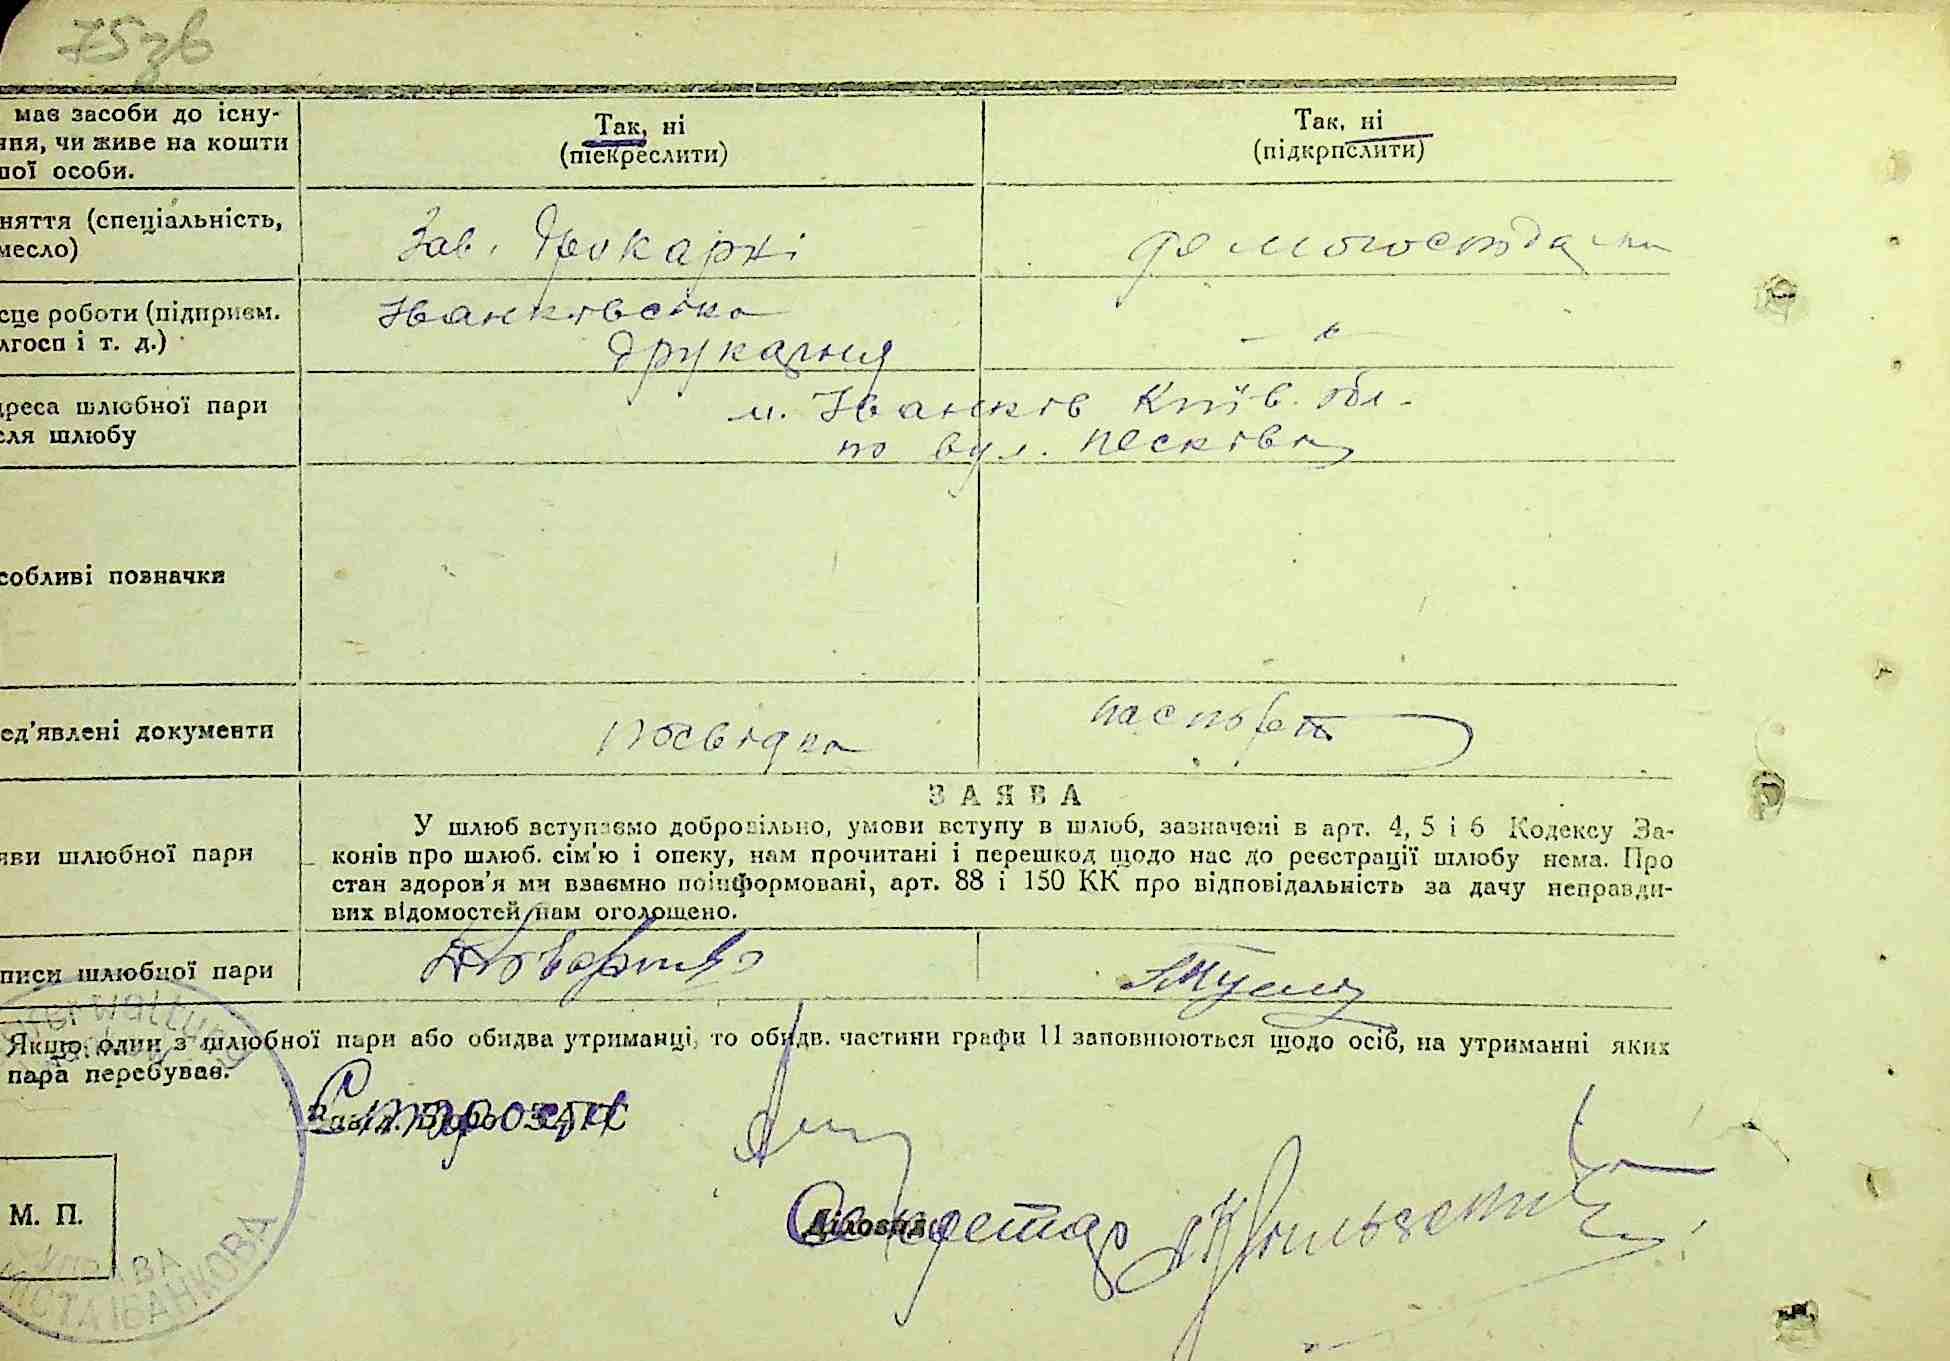 75зв
має засоби до існу-
ння, чи живе на кошти
шої особи.
Так, ні
(підкреслити)
Так, ні
(підкрпслити)
няття (спеціальність,
месло)
Зав. Друкарні
домогосподарка
сце роботи (підприєм.
лгосп і т. д.)
Іванківська
друкарня
— " —
дреса шлюбної пари
сля шлюбу
м. Іванків Київ. обл.
по вул. Песківка
собливі позначки
ед'явлені документи
посвідка
паспорт
ЗАЯВА
яви шлюбної пари
У шлюб вступаємо добровільно, умови вступу в шлюб, зазначені в арт. 4, 5 і 6 Кодексу За-
конів про шлюб. сім'ю і опеку, нам прочитані і перешкод щодо нас до реєстрації шлюбу нема. Про
стан здоров'я ми взаємно поінформовані, арт. 88 і 150 КК про відповідальність за дачу неправди-
вих відомостей нам оголошено.
писи шлюбної пари
Якщо один з шлюбної пари або обидва утриманці, то обидв. частини графи 11 заповнюються щодо осіб, на утриманні яких
пара перебуває.
Староста
Секретар
Діловод
М. П.
terwaltung
УПРАВА
МІСТА ІВАНКОВА